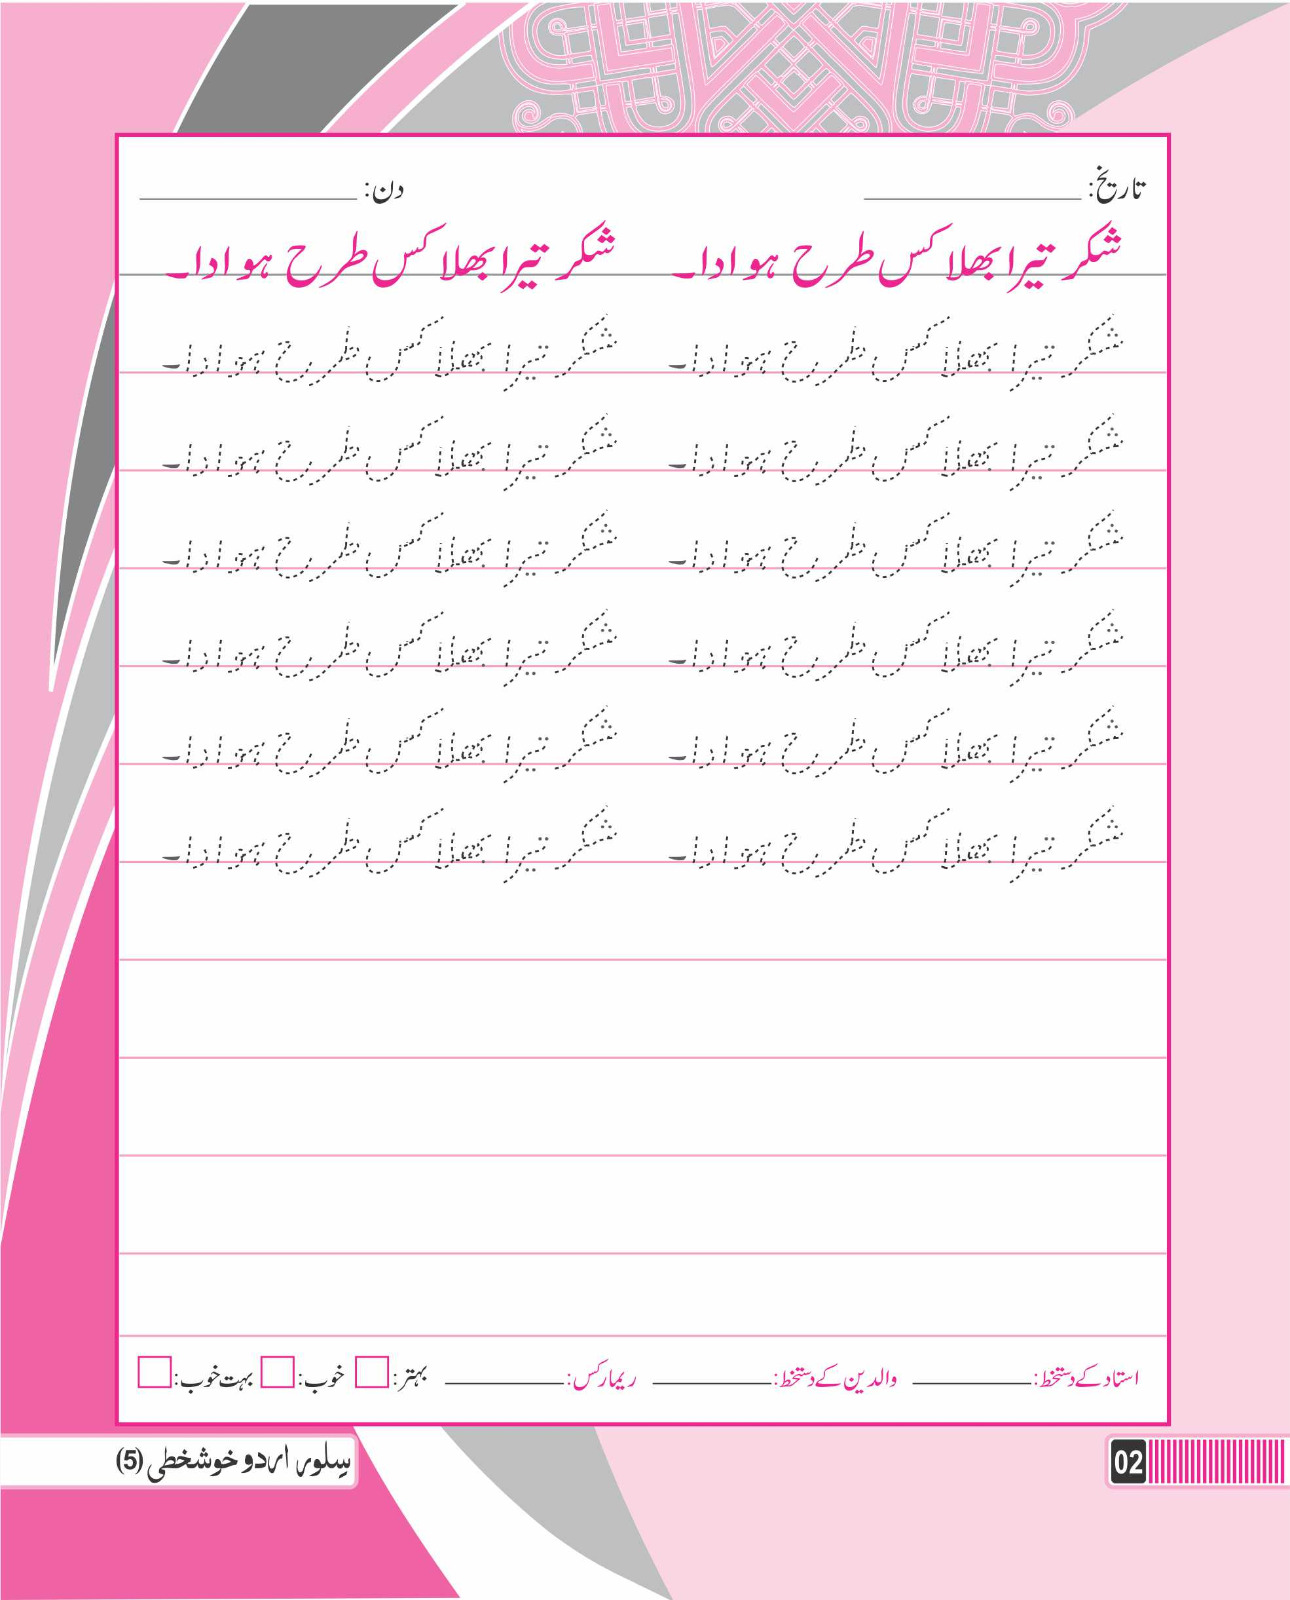 تاریخ: ____________ دن: ____________
شکر تیرا بھلا کس طرح ہو ادا۔ شکر تیرا بھلا کس طرح ہو ادا۔
شکر تیرا بھلا کس طرح ہو ادا۔ شکر تیرا بھلا کس طرح ہو ادا۔
شکر تیرا بھلا کس طرح ہو ادا۔ شکر تیرا بھلا کس طرح ہو ادا۔
شکر تیرا بھلا کس طرح ہو ادا۔ شکر تیرا بھلا کس طرح ہو ادا۔
شکر تیرا بھلا کس طرح ہو ادا۔ شکر تیرا بھلا کس طرح ہو ادا۔
شکر تیرا بھلا کس طرح ہو ادا۔ شکر تیرا بھلا کس طرح ہو ادا۔
شکر تیرا بھلا کس طرح ہو ادا۔ شکر تیرا بھلا کس طرح ہو ادا۔
استاد کے دستخط: ________ والدین کے دستخط: ________ ریمارکس: ________ بہتر: خوب: بہت خوب:
02 سلور اردو خوشخطی (5)